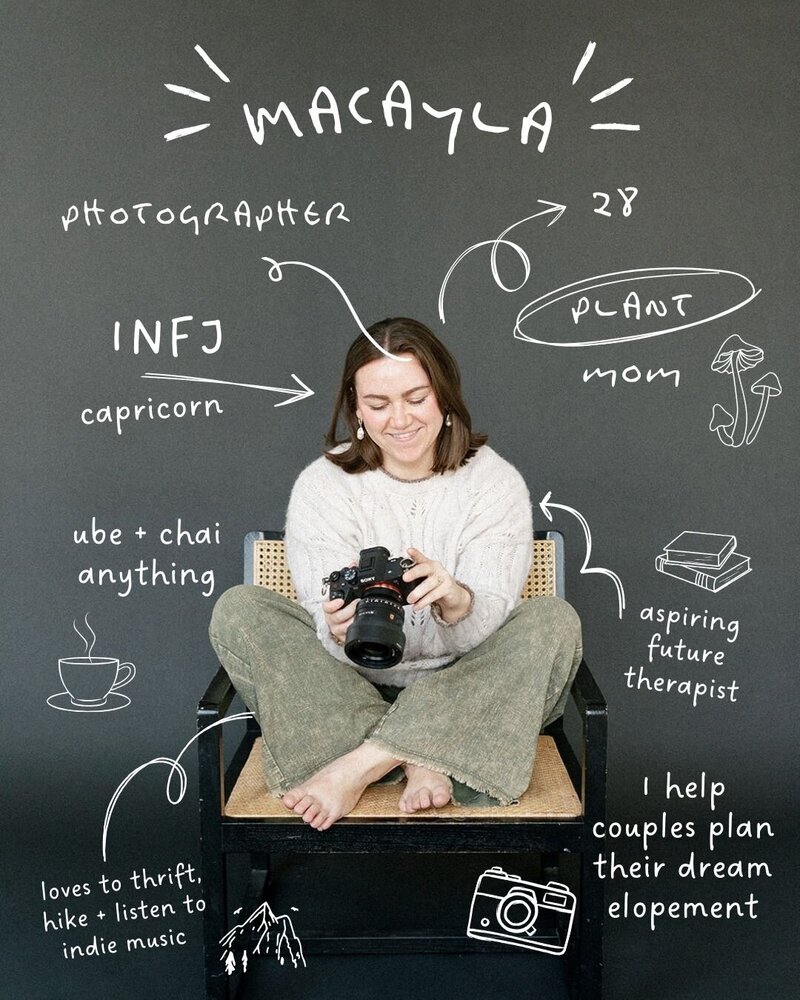 MACAYLA
PHOTOGRAPHER
28
INFJ
capricorn
PLANT
mom
ube + chai
anything
SONY
aspiring
future
therapist
loves to thrift,
hike + listen to
indie music
I help
couples plan
their dream
elopement